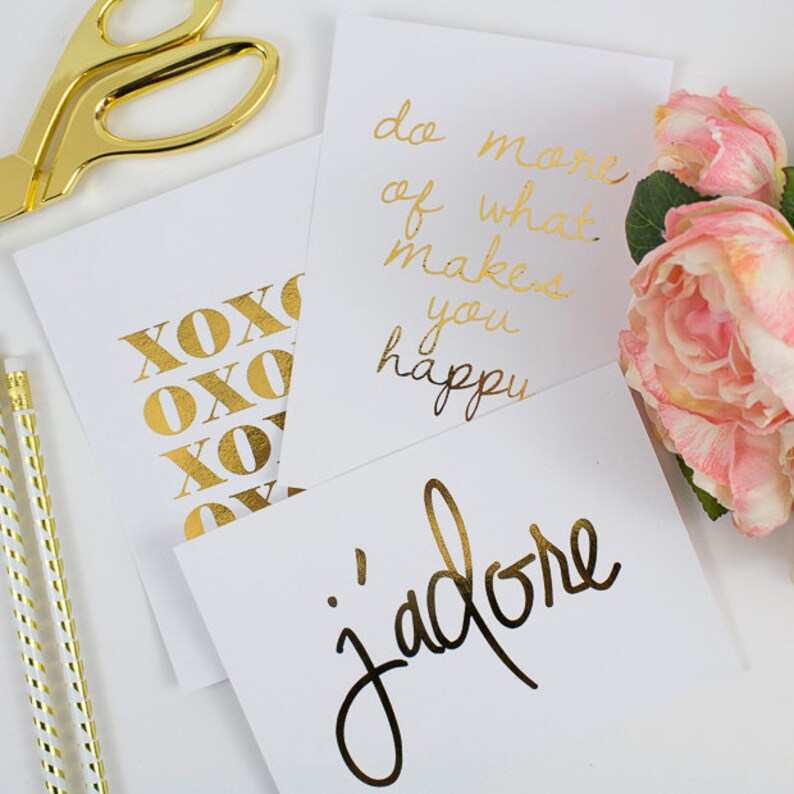 do more
of what
makes
you
happy
XOXO
OXO
XOX
OXO
j'adore